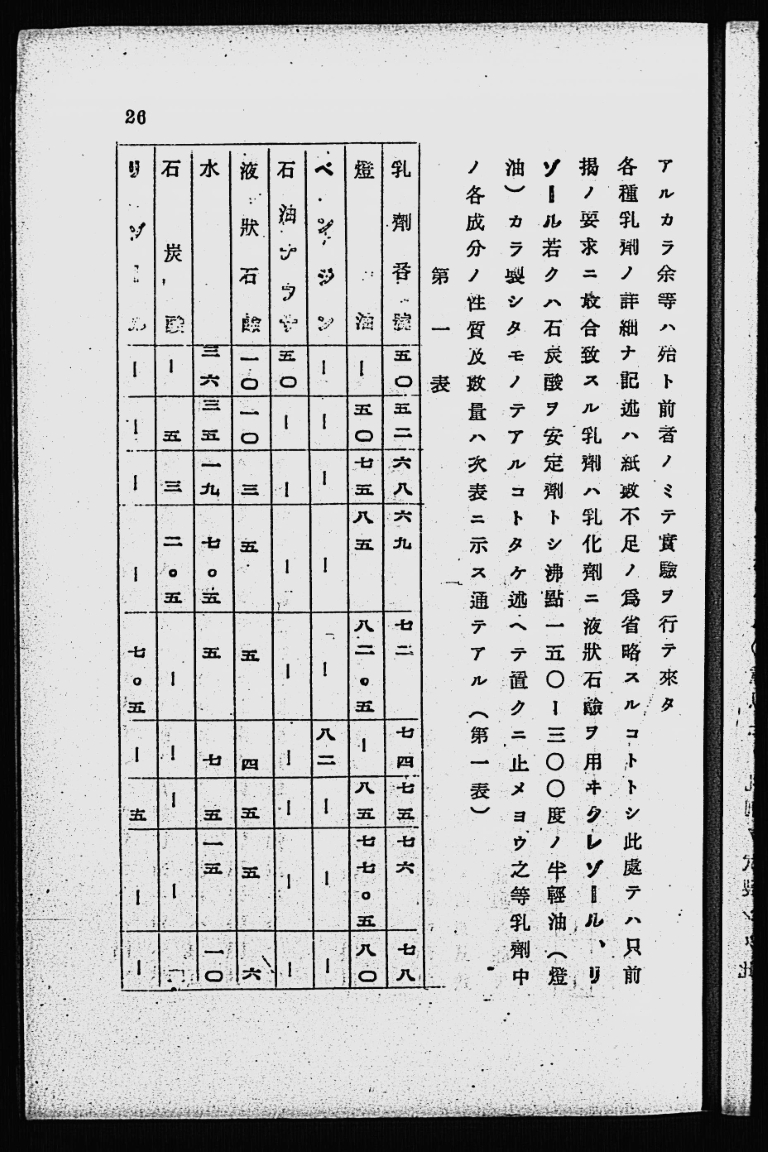 26
アルカラ余等ハ殆ト前者ノミテ實驗ヲ行テ來タ
各種乳劑ノ詳細ナ記述ハ紙數不足ノ爲省略スルコトトシ此處テハ只前
揭ノ要求ニ最合致スル乳劑ハ乳化劑ニ液狀石鹼ヲ用ヰクレゾール、リ
ゾール若クハ石炭酸ヲ安定劑トシ沸點一五〇ー三〇〇度ノ半輕油(燈
油)カラ製シタモノテアルコトタケ述ヘテ置クニ止メヨウ之等乳劑中
ノ各成分ノ性質及數量ハ次表ニ示ス通テアル(第一表)
第一表
乳劑番號 五〇 五二 六八 六九 七二 七四 七五 七六 七八
燈油 ー 五〇 七五 八五 八二。五 ー 八五 七七。五 八〇
ベンヂン ー ー ー ー ー 八二 ー ー ー
石油ナフサ 五〇 ー ー ー ー ー ー ー ー
液狀石鹼 一〇 一〇 三 五 五 四 五 五 六
水 三六 三五 一九 七。五 五 七 五 一五 一〇
石炭酸 ー 五 三 二。五 ー ー ー ー
リゾール ー ー ー ー 七。五 ー 五 ー ー